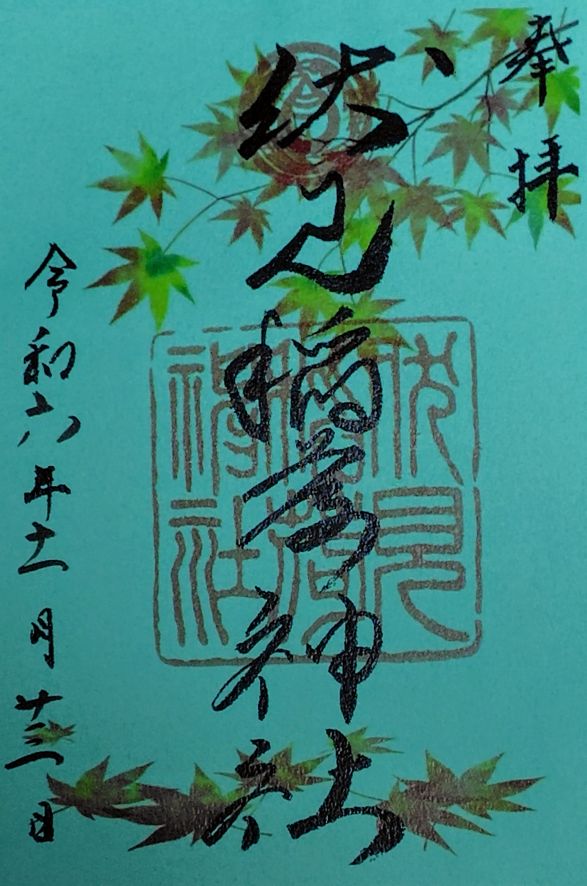 奉拝
伏見稲荷神社
伏見
稲荷
神社
令和六年十一月廿三日